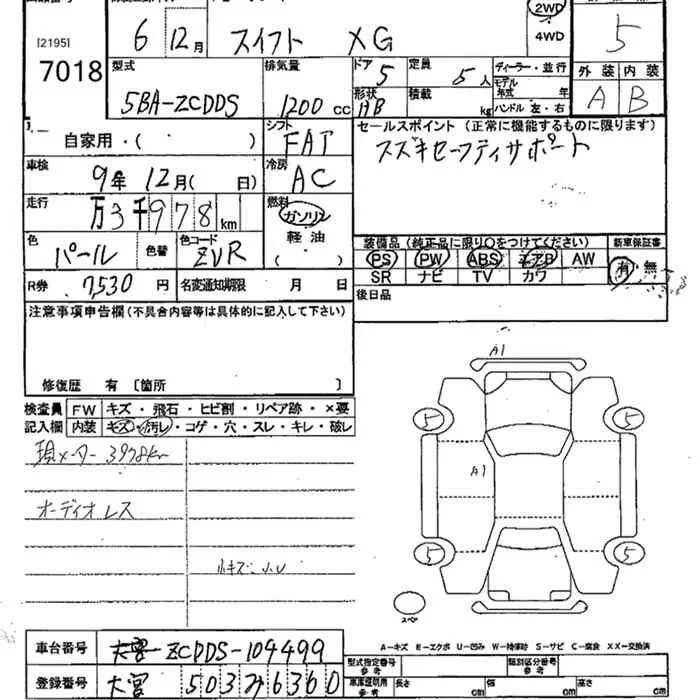 2WD
6 12月 スイフト XG
4WD
5
[2195]
7018
型式 排気量 ドア 5 定員 5人 ディーラー・並行
モデル年式 年
外装 内装
5BA-ZCDDS 1200cc 形状 HB 積載 kg ハンドル 左・右
A B
自家用・( )
シフト FAT
セールスポイント (正常に機能するものに限ります)
スズキセーフティサポート
車検 9年 12月( 日)
冷房 AC
走行 万3千978km
燃料 ガソリン 軽油 ( )
色 パール 色替 色コード ZVR
装備品(純正品に限り○をつけてください) 新車保証書
PS PW ABS エアB AW 有・無
SR ナビ TV カワ
R券 7,530円 名変通知期限 月 日
後日品
注意事項申告欄(不具合内容等は具体的に記入して下さい)
修復歴 有 [箇所 ]
検査員 FW キズ・飛石・ヒビ割・リペア跡・×要
記入欄 内装 キズ・汚レ・コゲ・穴・スレ・キレ・破レ
現メーター 3978km
オーディオレス
小キズ小U
A1
A1
5 5
5 5
スペア
A-キズ E-エクボ U-凹み W-補修跡 S-サビ C-腐食 XX-交換済
車台番号 ZCDDS-109499
型式指定番号 参考 類別区分番号 参考
登録番号 大宮 503み6360
車庫証明用 参考 長さ cm 幅 cm 高さ cm